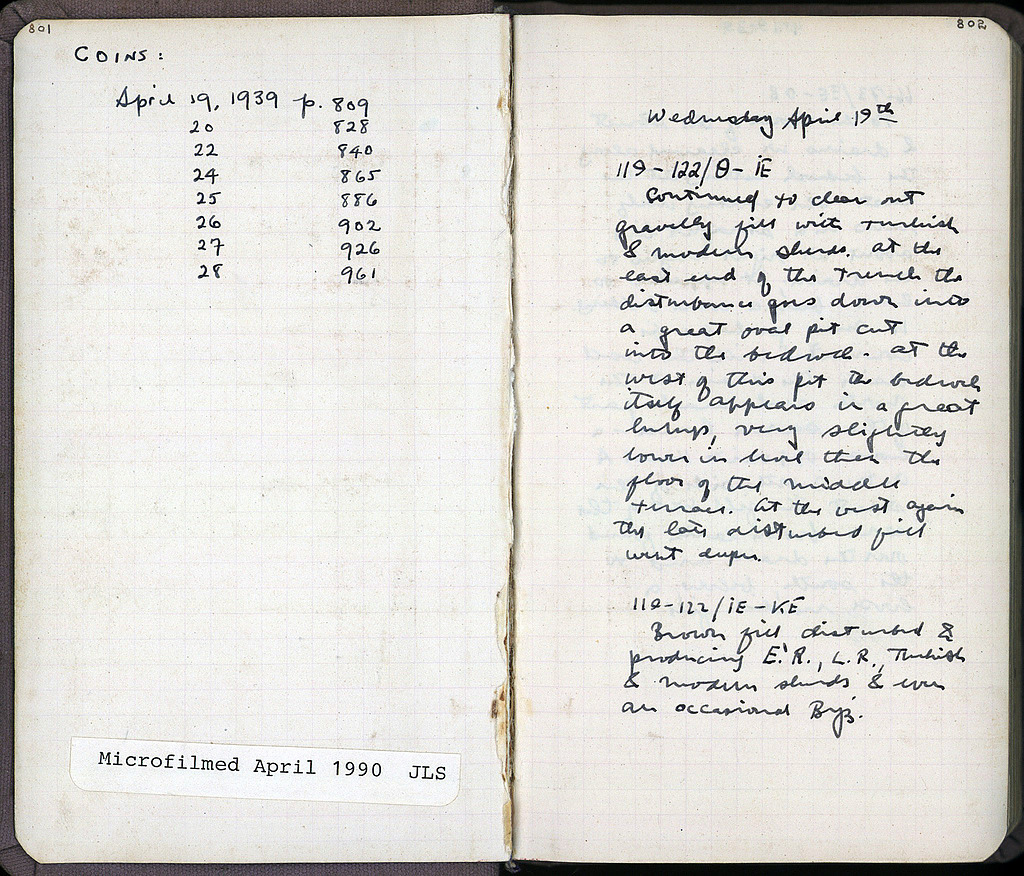 801
COINS:
April 19, 1939 p. 809
20 828
22 840
24 865
25 886
26 902
27 926
28 961
Microfilmed April 1990 JLS
802
Wednesday April 19th
119-122/Θ-ΙΕ
Continued to clear out
gravelly fill with Turkish
& modern sherds. At the
east end of the trench the
disturbance goes down into
a great oval pit cut
into the bedrock. At the
west of this pit the bedrock
itself appears in a great
lump, very slightly
lower in level then the
floor of the middle
terrace. At the west again
the late disturbed fill
went deeper.
119-122/ΙΕ-ΚΕ
Brown fill, disturbed &
producing E.R., L.R., Turkish
& modern sherds & even
an occasional Byz.